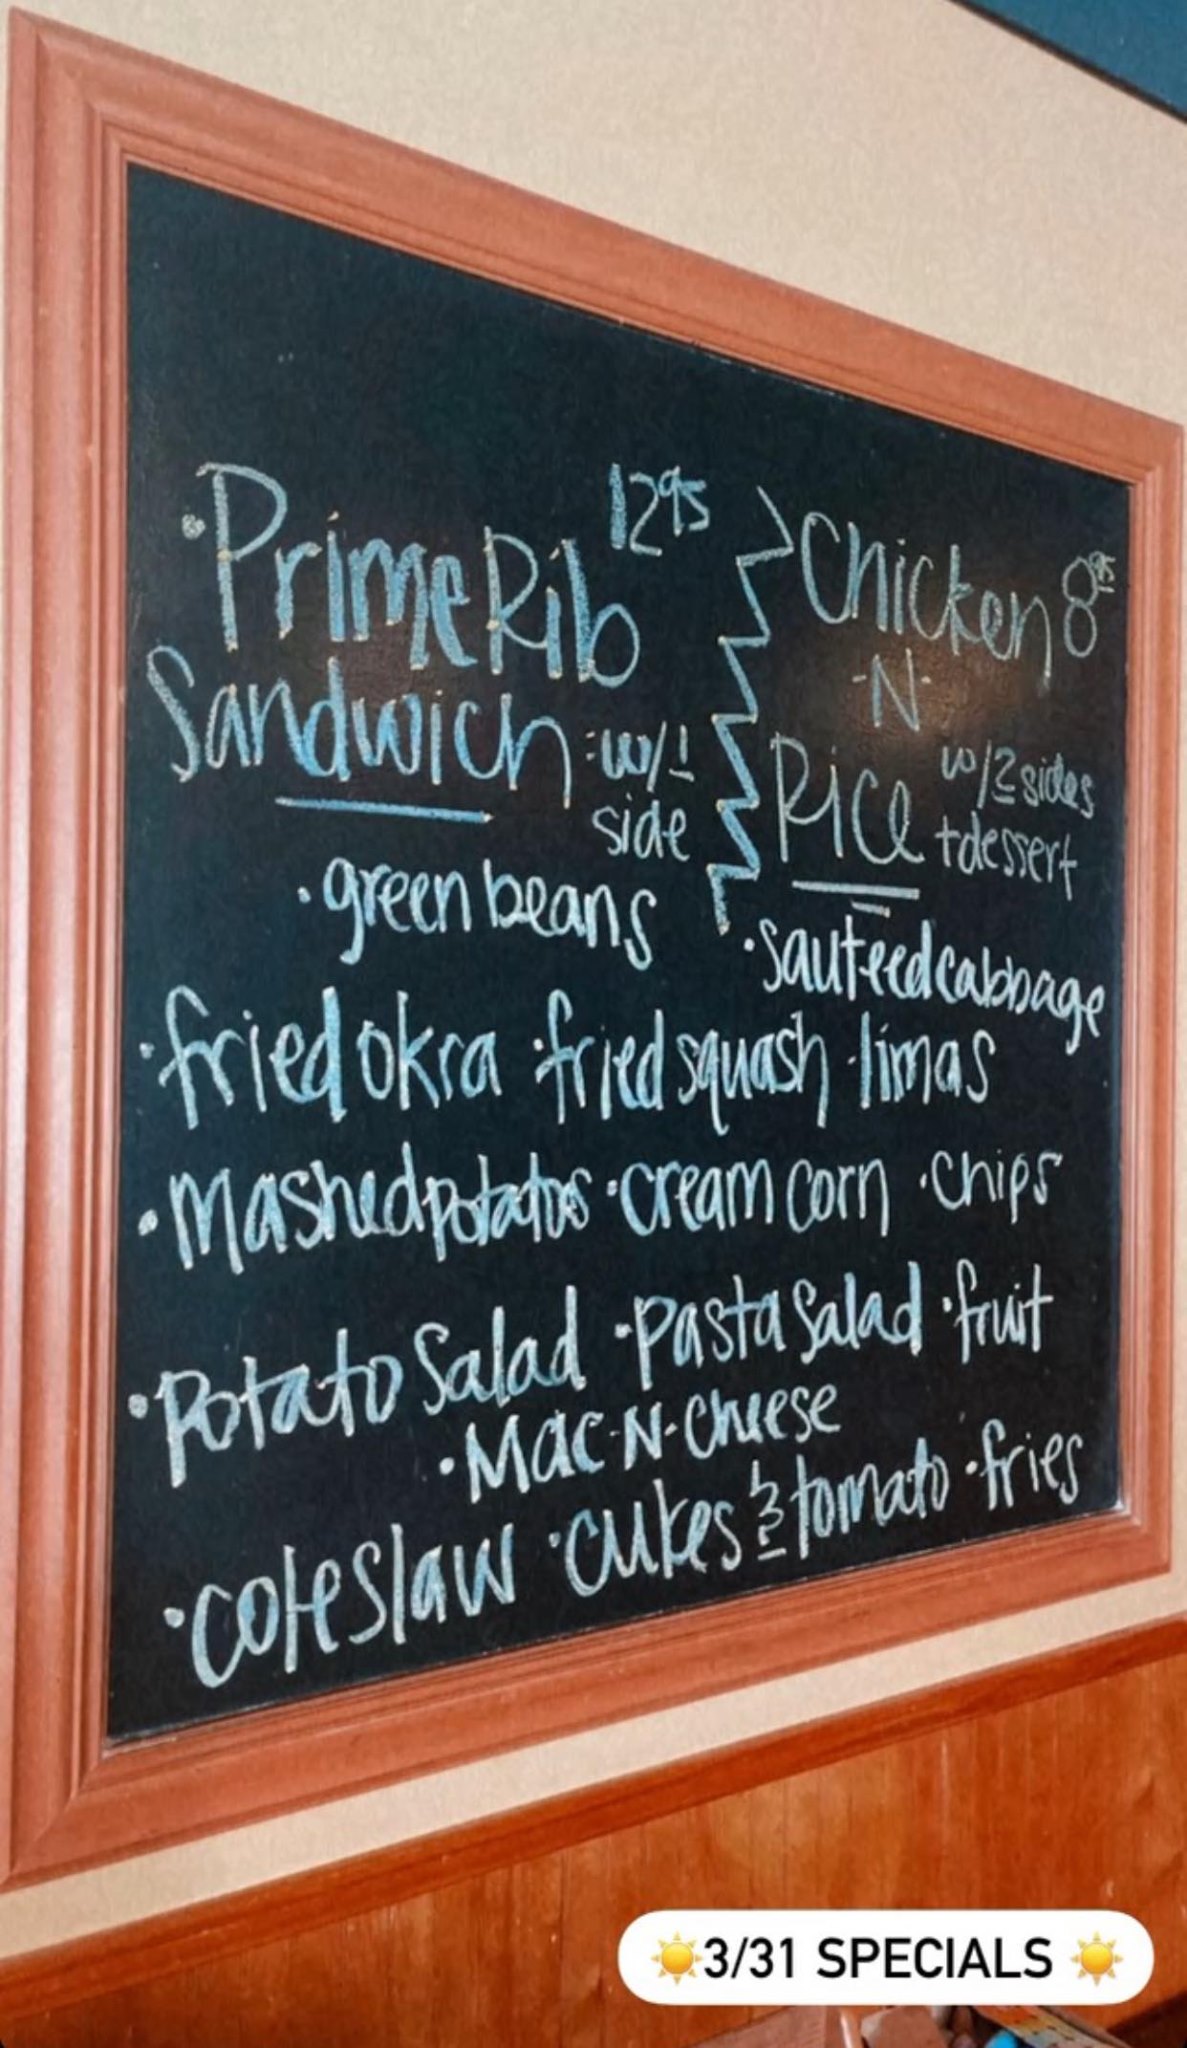 • Prime Rib 12 95
Sandwich : w/ 1
side
Chicken 8 95
-N-
Rice w/ 2 sides
+ dessert
• green beans
• sauteed cabbage
• fried okra • fried squash • limas
• Mashed potatos • cream corn • chips
• Potato Salad • Pasta Salad • fruit
• Mac-N-Cheese
• coleslaw • cukes & tomato • fries
☀️3/31 SPECIALS ☀️